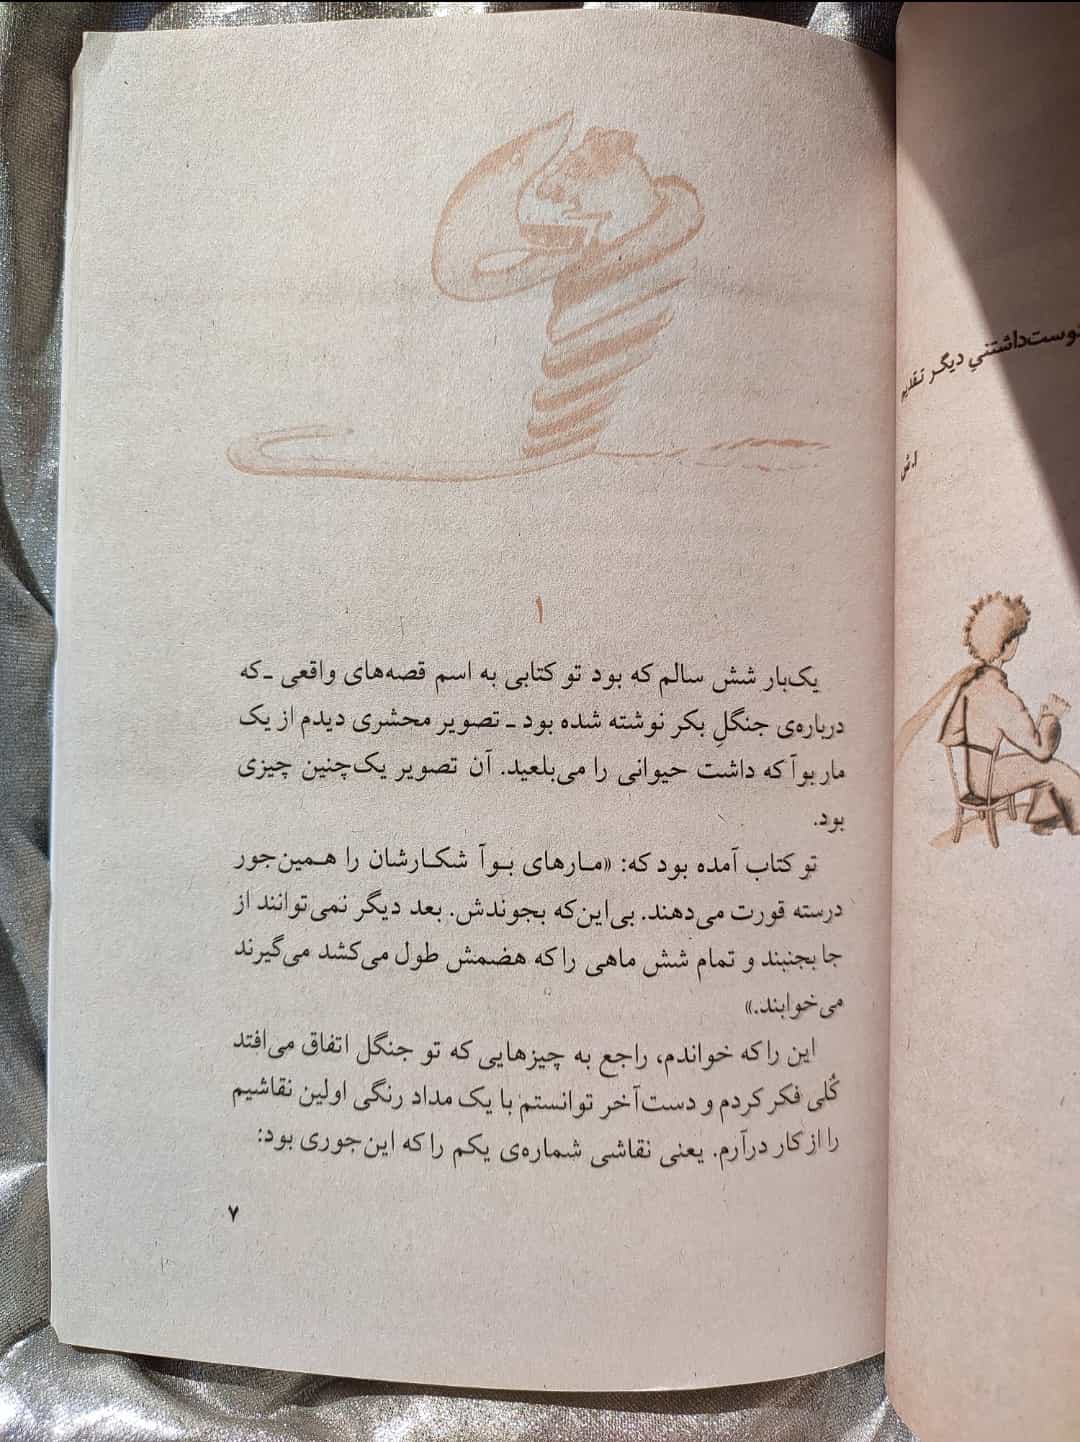 وست‌داشتنیِ دیگر تقدیم
ا.ش
۱
یک‌بار شش سالم که بود تو کتابی به اسم قصه‌های واقعی ـ که
درباره‌ی جنگلِ بکر نوشته شده بود ـ تصویر محشری دیدم از یک
مار بوآ که داشت حیوانی را می‌بلعید. آن تصویر یک‌چنین چیزی
بود.
تو کتاب آمده بود که: «مـارهای بـوآ شکـارشان را همـین‌جور
درسته قورت می‌دهند. بی‌این‌که بجوندش. بعد دیگر نمی‌توانند از
جا بجنبند و تمام شش ماهی را که هضمش طول می‌کشد می‌گیرند
می‌خوابند.»
این را که خواندم، راجع به چیزهایی که تو جنگل اتفاق می‌افتد
کُلی فکر کردم و دست‌آخر توانستم با یک مداد رنگی اولین نقاشیم
را از کار درآرم. یعنی نقاشی شماره‌ی یکم را که این‌جوری بود:
۷